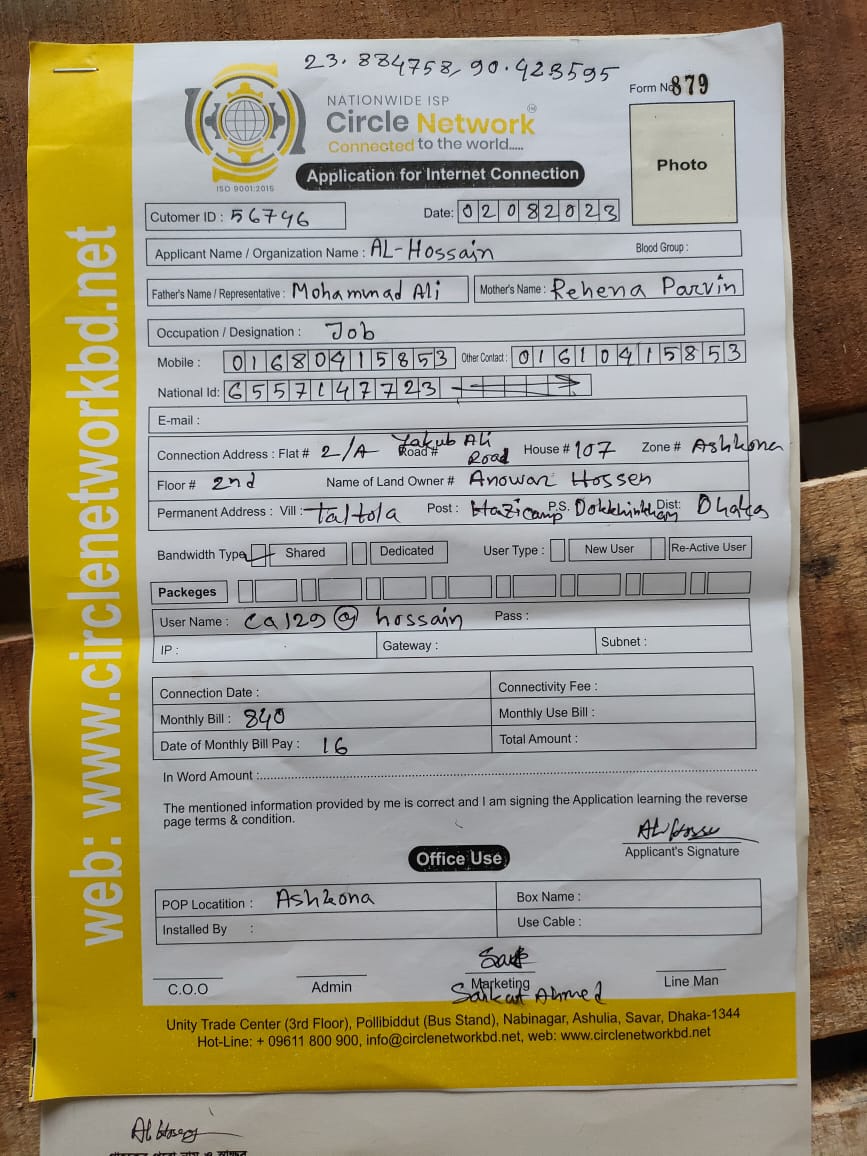 23.884758, 90.423595
Form No 879
NATIONWIDE ISP
Circle Network
Connected to the world.....
ISO 9001:2015
Application for Internet Connection
Photo
Cutomer ID : 56746
Date: 02082023
Applicant Name / Organization Name : AL-Hossain Blood Group :
Father's Name / Representative : Mohammad Ali Mother's Name : Rehena Parvin
Occupation / Designation : Job
Mobile : 01680415853 Other Contact : 01610415853
National Id: 6557147723
E-mail :
Connection Address : Flat # 2/A Road # Yakub Ali Road House # 107 Zone # Ashkona
Floor # 2nd Name of Land Owner # Anowar Hossen
Permanent Address : Vill : taltola Post : Hazicamp P.S. Dokkhinkham Dist: Dhaka
Bandwidth Type Shared Dedicated User Type : New User Re-Active User
Packeges
User Name : Ca129@hossain Pass :
IP : Gateway : Subnet :
Connection Date : Connectivity Fee :
Monthly Bill : 840 Monthly Use Bill :
Date of Monthly Bill Pay : 16 Total Amount :
In Word Amount :
The mentioned information provided by me is correct and I am signing the Application learning the reverse
page terms & condition.
Applicant's Signature
Office Use
POP Locatition : Ashkona Box Name :
Installed By : Use Cable :
C.O.O Admin Marketing Line Man
Saikat Ahmed
Unity Trade Center (3rd Floor), Pollibiddut (Bus Stand), Nabinagar, Ashulia, Savar, Dhaka-1344
Hot-Line: + 09611 800 900, info@circlenetworkbd.net, web: www.circlenetworkbd.net
web: www.circlenetworkbd.net